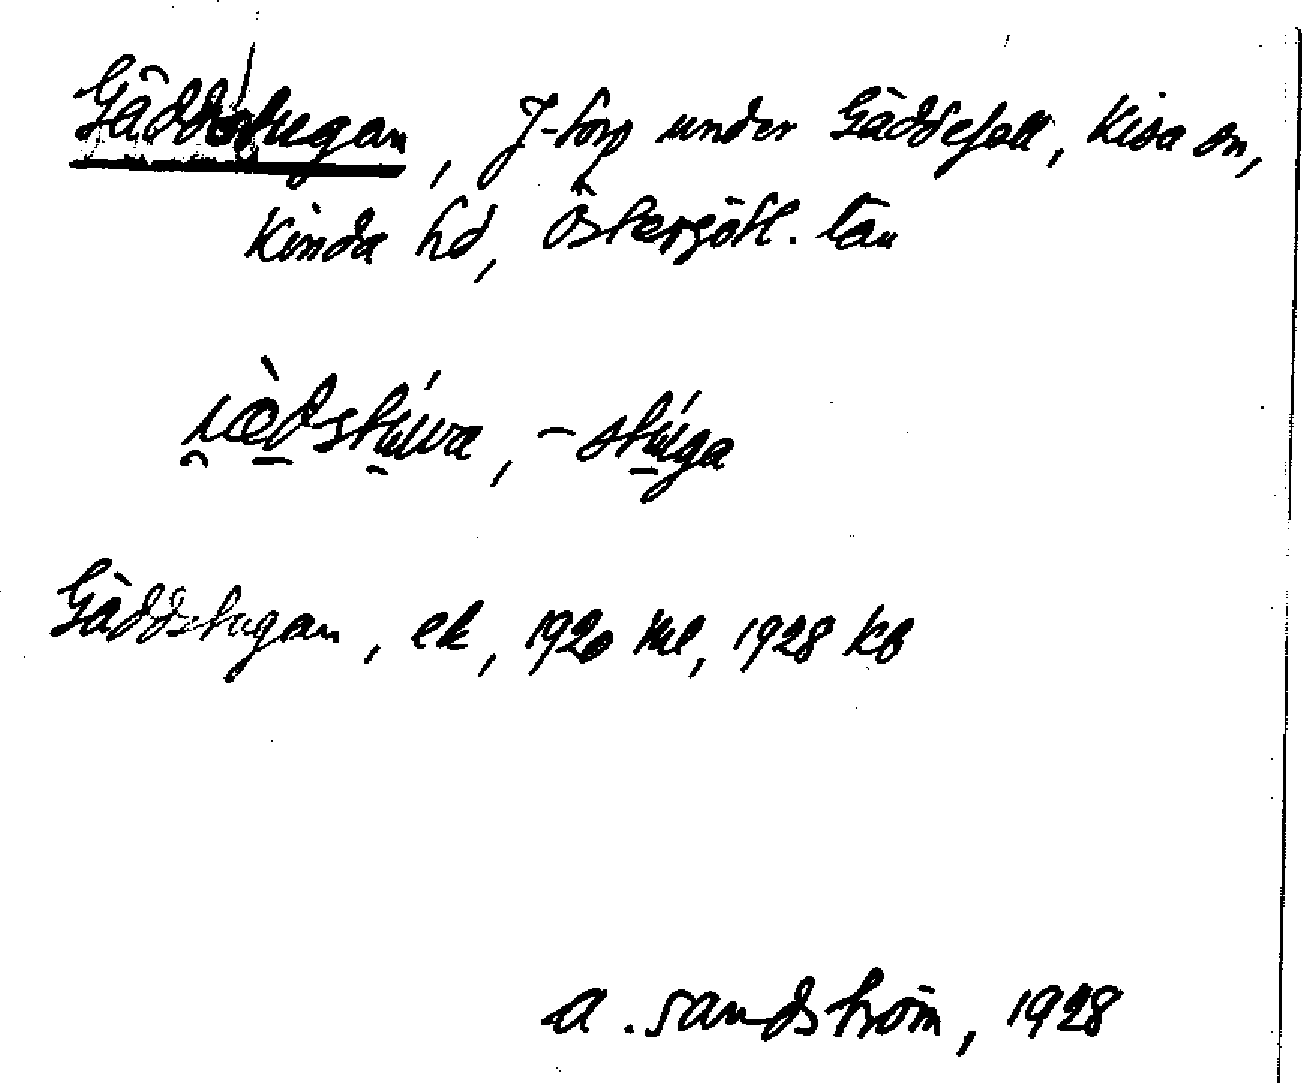 Gäddstugan, J-torp under Gäddefall, Kisa sn,
Kinda hd, Östergötl. län
i̯æ̀dstúwa, -stúga
Gäddstugan, ek, 1920 Ml, 1928 kb
A. Sandström, 1928